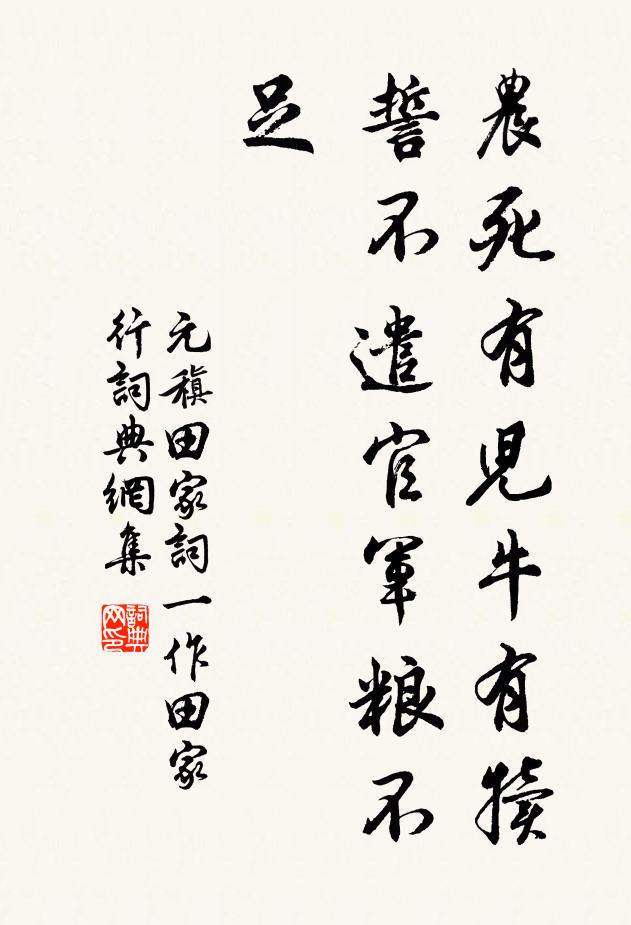 農死有兒牛有犢
誓不遣官軍粮不
足
元稹田家詞一作田家
行詞典網集
詞典
网印